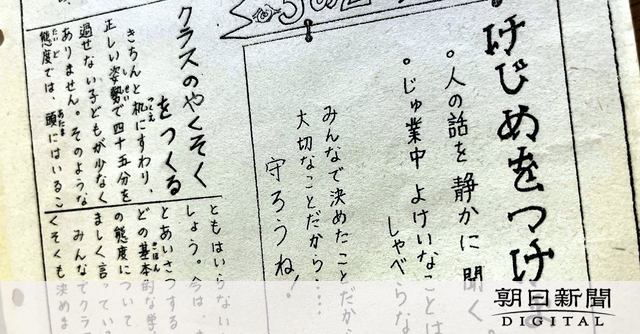 けじめをつけ
。人の話を静かに聞く。
。じゅ業中よけいなことは
しゃべらな
みんなで決めたことだから
大切なことだから・・・・
守ろうね!
クラスのやくそく
をつくる
きちんと机にすわり、
つくえ
正しい姿勢で四十五分を
しせい
過せない子どもが少なく
ありません。そのような
態度では、頭にはいるこ
たいど
あたま
ともはいらない
しょう。今は、
とあいさつする
どの基本的な学
きほん
の態度について
ましく言ってい
みんなでクラ
くそくも決めま
朝日新聞
DIGITAL